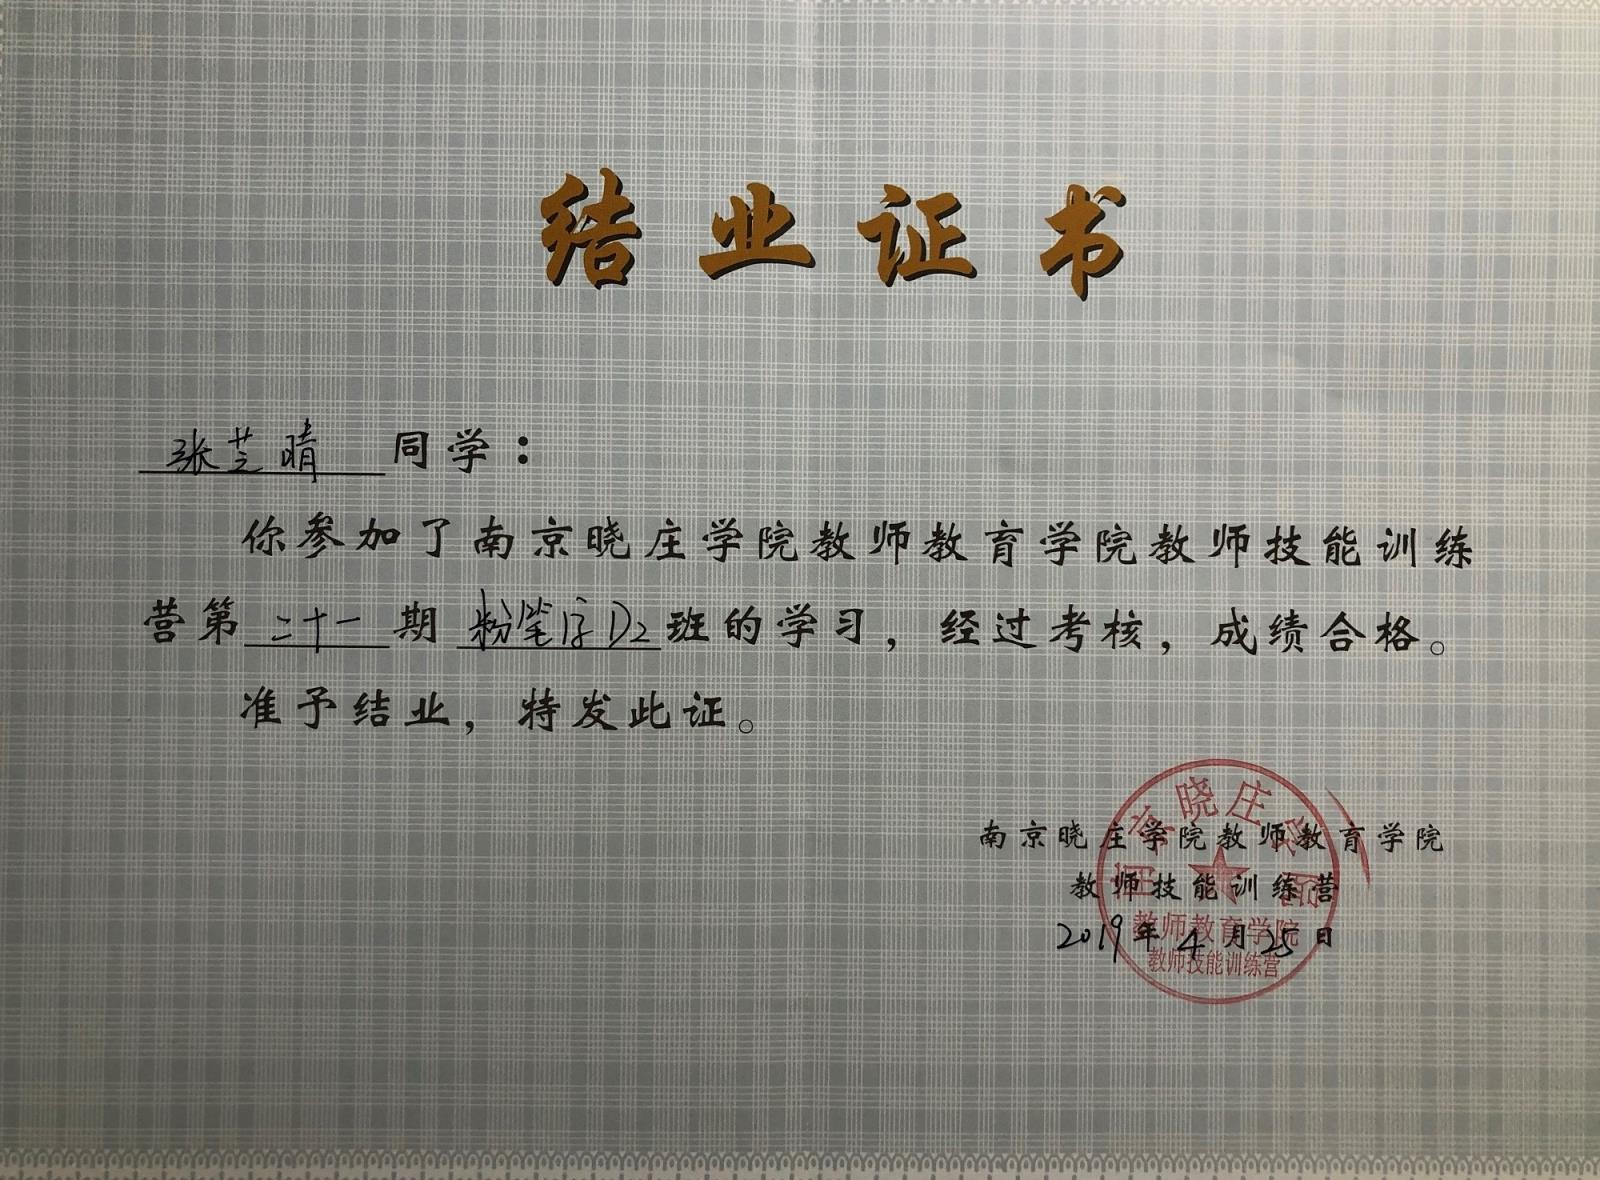 结业证书
张芝晴 同学：
你参加了南京晓庄学院教师教育学院教师技能训练
营第二十一期粉笔字D2班的学习，经过考核，成绩合格。
准予结业，特发此证。
南京晓庄学院教师教育学院
教师技能训练营
2019年4月25日
南京晓庄学院
教师教育学院
教师技能训练营